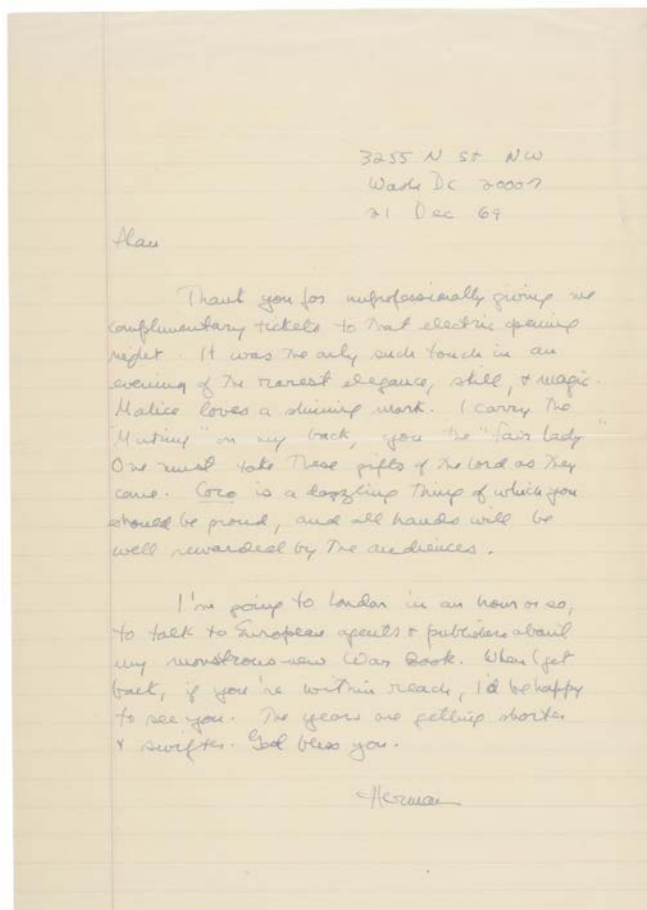 3255 N St NW
Wash DC 20007
21 Dec 69
Alan
Thank you for unprofessionally giving me
complimentary tickets to that electric opening
night. It was the only such touch in an
evening of the rarest elegance, skill, & magic.
Malice loves a shining mark. I carry the
"Mutiny" on my back, you the "fair lady"
One must take these gifts of the Lord as they
come. Coco is a dazzling thing of which you
should be proud, and all hands will be
well rewarded by the audiences.
I'm going to London in an hour or so,
to talk to European agents & publishers about
my monstrous new War Book. When I get
back, if you're within reach, I'd be happy
to see you. The years are getting shorter
& swifter. God bless you.
Herman